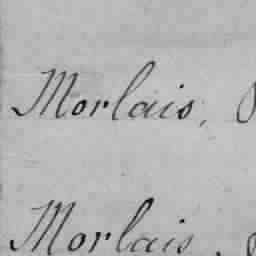 Morlais,
Morlais.